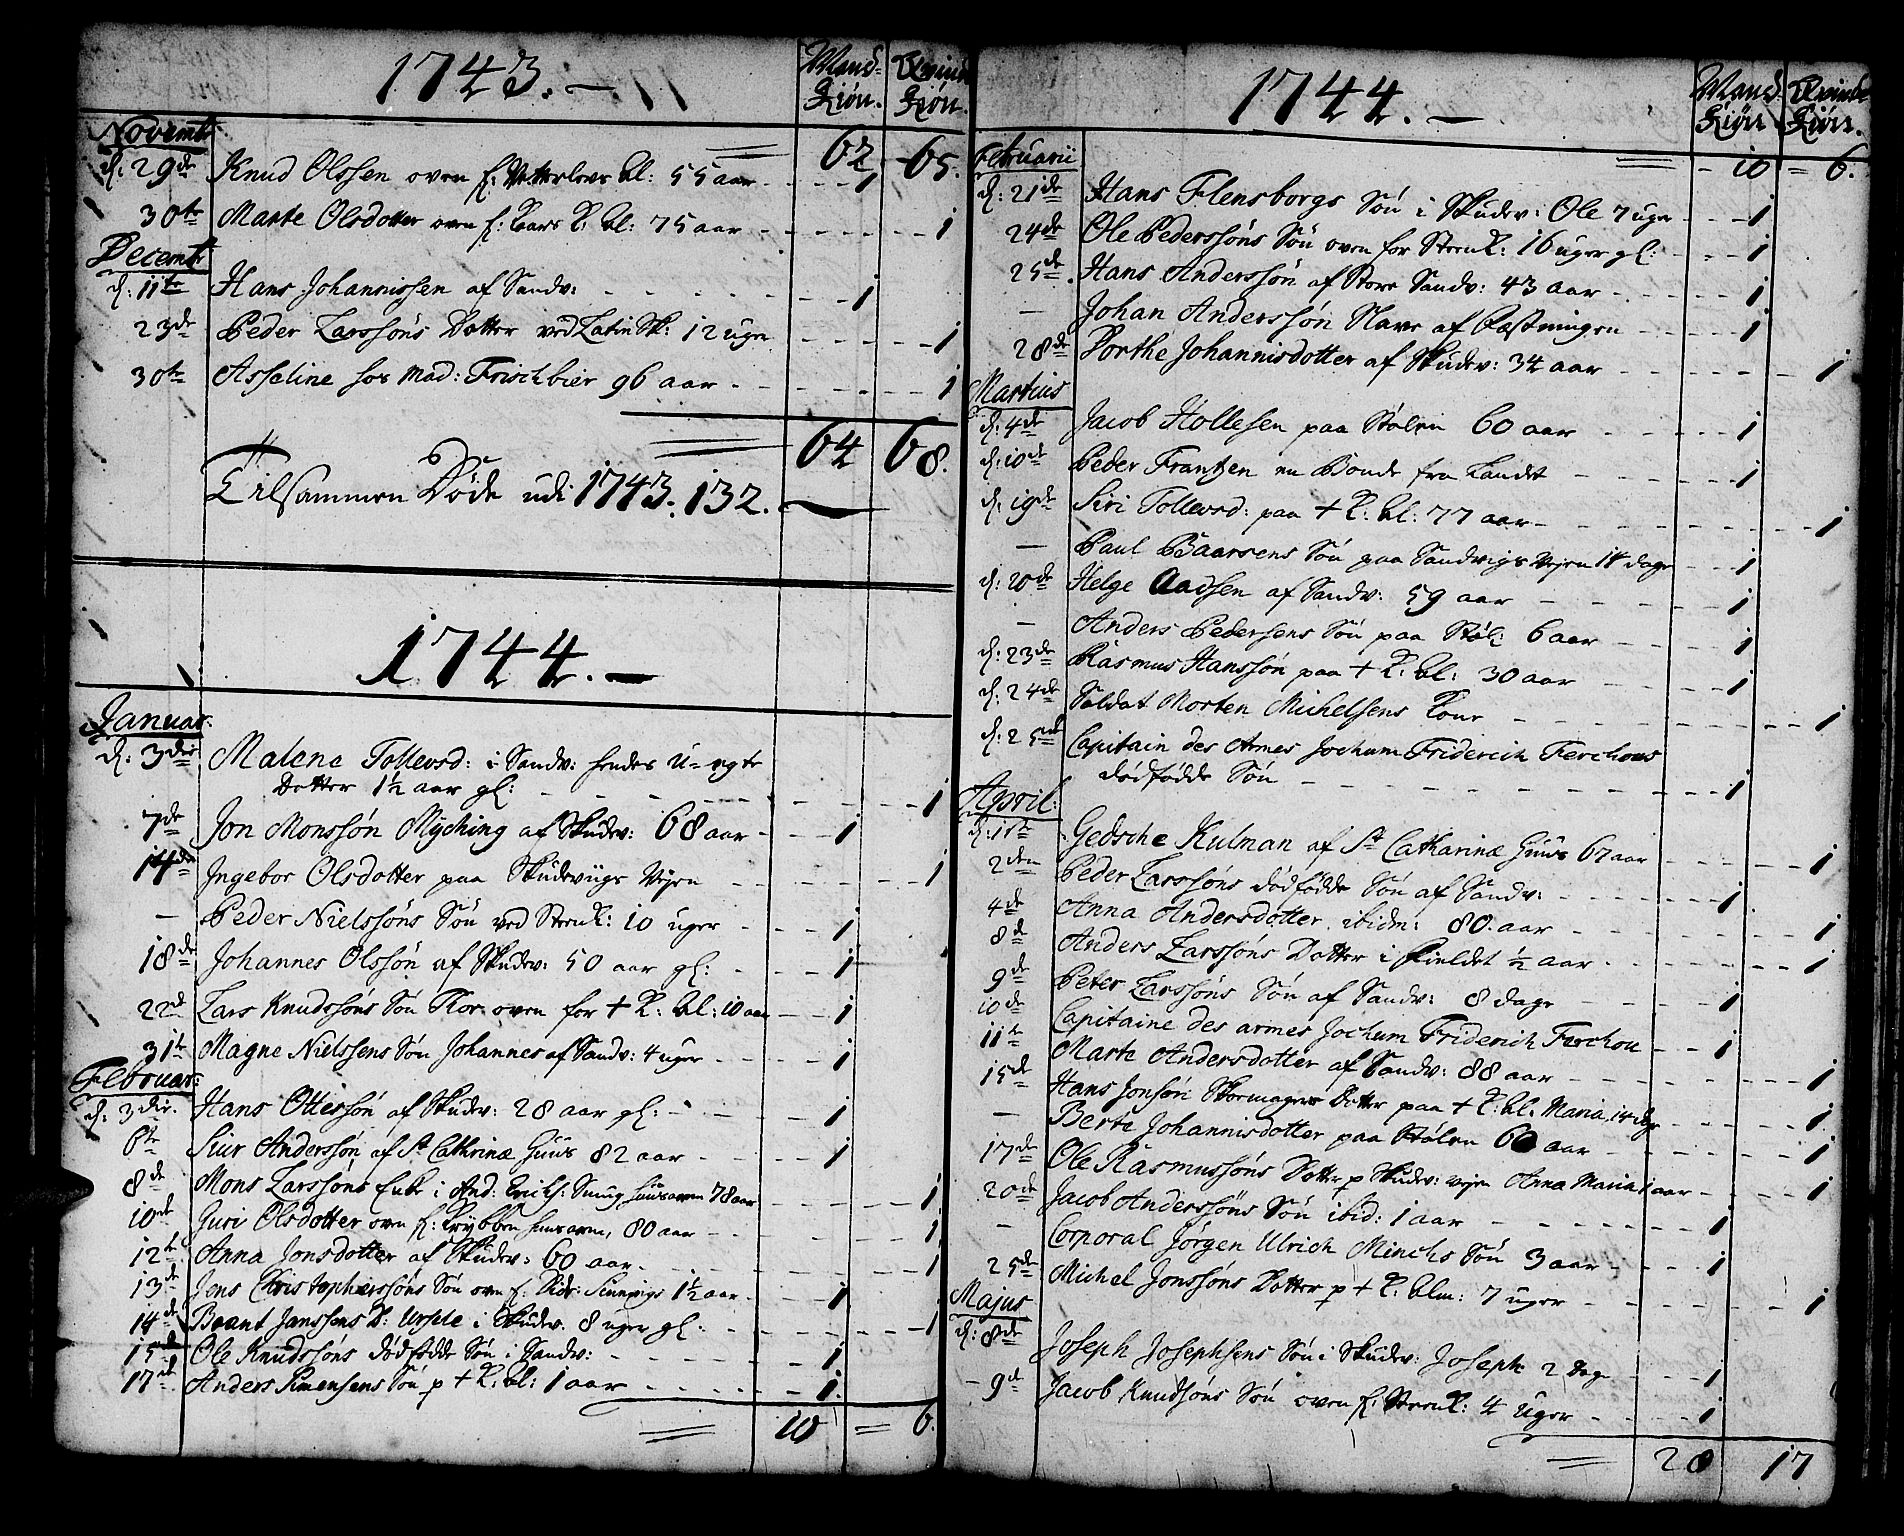 1743. —
Mand Kiön. Qvinde Kiön.
Novemb:
62 65.
d: 29de Knud Olssen oven f: bl: 55 aar 1
30te Marte Olsdotter oven f: Kors K: bl: 75 aar 1
Decemb:
d: 11te Hans Johannissen af Sandv: 1
23de Peder Larssöns Dotter ved Latin Sk: 12 uger 1
30te Asseline hos Mad: Frischbier 96 aar 1
64 68.
Tilsammen Døde udi 1743. 132.
1744. —
Januar:
d: 3die Malene Tollevsd: i Sandv: hendes U-ægte
Dotter 1½ aar gl: 1
7de Jon Monssön Myching af Skudev: 68 aar 1
14de Ingebor Olsdotter paa Skudeviigs Vejen 1
— Peder Nielssöns Sön ved SteenK: 10 uger 1
18de Johannes Olssön af Skudev: 50 aar gl: 1
22de Lars Knudssöns Sön Tor oven for + K: bl: 10 aar 1
31te Magne Nielssens Sön Johannes af Sandv: 4 uger 1
Februar:
d: 3die. Hans Ottessön af Skudev: 28 aar gl: 1
6te Siur Anderssön af St Cathrinæ Huus 82 aar 1
8de Mons Larssöns Enke i And: Erichs: Smug 78 aar 1
10de Guri Olsdotter oven f: Krybben 80 aar 1
12te Anna Jonsdotter af Skudev: 60 aar 1
13de Jens Christophersöns Sön oven f: 1½ aar 1
14de Beent Janssens D: i Skudev: 8 uger gl: 1
15de Ole Knudssöns dödfødde Sön i Sandv: 1
17de Anders Simensens Sön p + K: bl: 1 aar 1.
10 = 6.
1744. —
Mand Kiön Qvinde Kiön.
Februarii
10 = 6.
d: 21de Hans Flensborgs Sön i Skudev: Ole 7 uger 1
24de Ole Pederssöns Sön oven for SteenK: 16 uger gl: 1
25de. Hans Anderssön af Store Sandv: 43 aar 1
— Johan Anderssön Slave af Fæstningen 1
28de Dorthe Johannisdotter af Skudev: 34 aar 1
Martius
d: 4de Jacob Hollesen paa Stölen 60 aar 1
d: 10de Peder Frantzen en Bonde fra Landet 1
d: 19de Siri Tollevsd: paa + K: bl: 77 aar 1
— Paul Baarsens Sön paa Sandvigs Vejen 14 dage 1
d: 20de Helge Aadsen af Sandv: 59 aar 1
— Anders Pedersens Sön paa Stöl: 6 aar 1
d: 23de Rasmus Hanssön paa + K: bl: 30 aar 1
d: 24de Soldat Morten Michelsens Kone 1
d: 25de Capitain des Armes Jochum Friderich Ferchous
dödfødde Sön 1
April:
d: 1ste Gedsche Kulman af St Catharinæ Huus 67 aar 1
2den Peder Larssöns dödfødde Sön af Sandv: 1
4de Anna Andersdotter ibidm: 80 aar 1
8de Anders Larssöns Dotter i Fieldet ½ aar 1
9de Peter Larssöns Sön af Sandv: 8 dage 1
10de Capitaine des armes Jochum Friderich Ferchou 1
11te Marte Andersdotter af Sandv: 88 aar 1
15de Hans Jonsön Skomagers Dotter paa + K: bl: Maria 14 dge 1
— Berte Johannisdotter paa Stölen 60 aar 1
17de Ole Rasmussöns Dotter p Skudev: vejen Anna Maria 1 aar 1
20de Jacob Anderssöns Sön ibid: 1 aar 1
— Corporal Jørgen Ulrich Minchs Sön 3 aar 1
25de Michel Jonssöns Dotter p + K: blm: 7 uger 1
Majus
d: 8de Joseph Josephsens Sön i Skudev: Joseph 2 Dage 1
— 9de Jacob Knudsöns Sön oven f: SteenK: 4 Uger 1
28 17